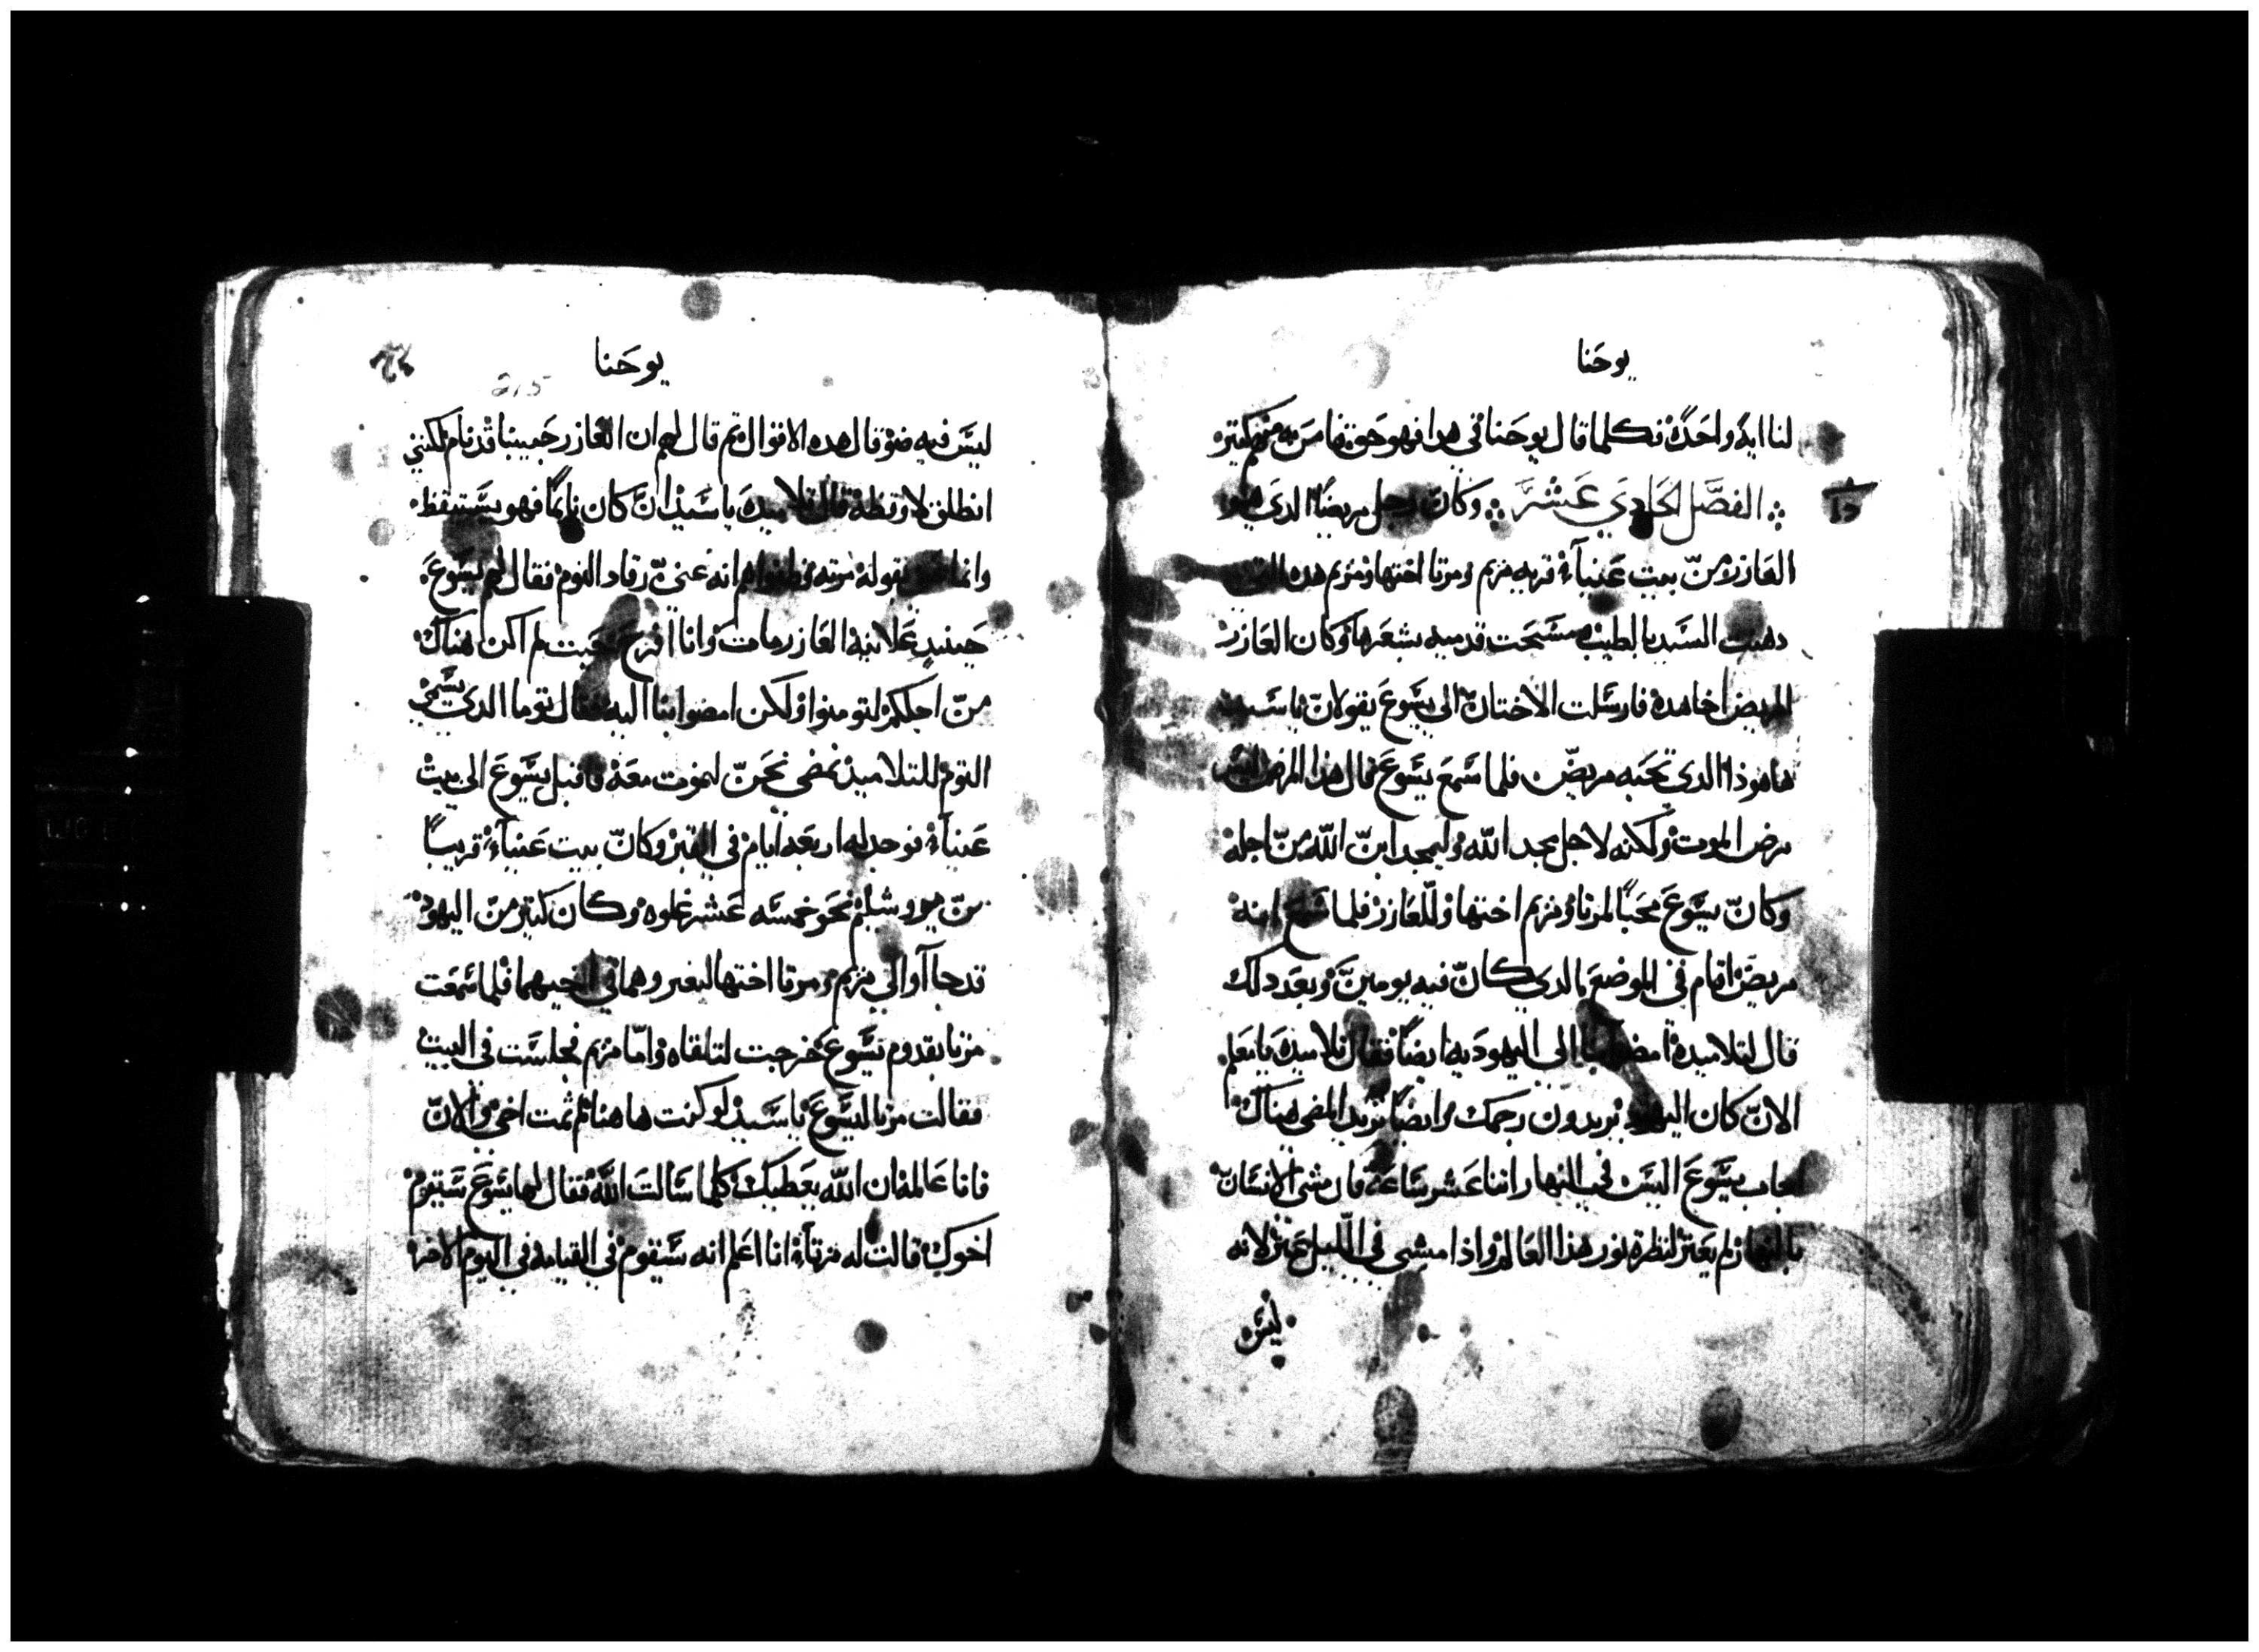 يوحنا
لنا ايةً واحدةً فكلما قال يوحنا في هدا فهو حق فامن به كتير
الفصَّل الحَادي عَشرَ وكان رجل مريضاً الدي هو
العَازر من بيت عَنيآء قريه مريم ومرتا اختها ومريم هده التي
دهنت السَّيد بالطيب ومسَّحَت قدميه بشعَرها وكان العَازر
المريض اخا هده فارسَّلت الاختان الى يسَّوعَ يقولان يا سَّيد
هاهوذا الدي تحَبه مريض فلما سَّمعَ يسَّوعَ قال هذا المرض ليسَّ
مرض الموت ولكنه لاجل مجد الله وليمجد ابن الله من اجله
وكان يسَّوعَ محَباً لمرتا ومريم اختها وللعَازر فلما سَّمعَ انه
مريض اقام في الموضعَ الدي كان فيه يومين وبعَد دلك
قال لتلاميده امضوا بنا الى اليهوديه ايضاً فقال تلاميده يا معَلم
الان كان اليهود يريدون رجمك وايضاً تريد المضي هناك
اجاب يسَّوعَ اليسَّ في النهار اتنا عَشر سَّاعَة فان مشى الانسَّان
بالنهار لم يعَتر لنظره نور هذا العَالم واذا مشى في الليل عَتر لانه
ليسَّ
يوحنا
215
ليسَّ فيه ضوَّ قال هده الاقوال تم قال لهم ان العَازر حَبيبنا قد نام لكنني
انطلق لاوقظه قال تلاميده يا سَّيد ان كان نايماً فهو يسَّتيقظ
وانما يسوع بقوله موته فظنوا هم انه عَنى رقاد النوم فقال لهم يسَّوعَ
حَينيدٍ عَلانية العَازر مات وانا افرح حيت لم اكن هناك
من اجلكم لتومنوا ولكن امضوا بنا اليه فقال توما الدي يسَّمى
التوم للتلاميد نمضي نحَن لنموت معَه فاقبل يسَّوعَ الى بيت
عَنيآء فوجد له اربعَه ايام في القبر وكان بيت عَنيآء قريباً
من يروشليم نحَو خمسَّه عَشر غلوه وكان كتير من اليهود
قد جاآوا الى مريم ومرتا اختها ليعَزوهما في اخيهما فلما سَّمعَت
مرتا بقدوم يسَّوعَ خرجت لتلقاه واما مريم فجلسَّت في البيت
فقالت مرتا ليسَّوعَ يا سَّيد لو كنت هاهنا لم تمت اخي والان
فانا عَالمة ان الله يعَطيك كلما سَّالت الله فقال لها يسَّوعَ سَّيقوم
اخوك قالت له مرتآء انا اعَلم انه سَّيقوم في القيامة في اليوم الاخر